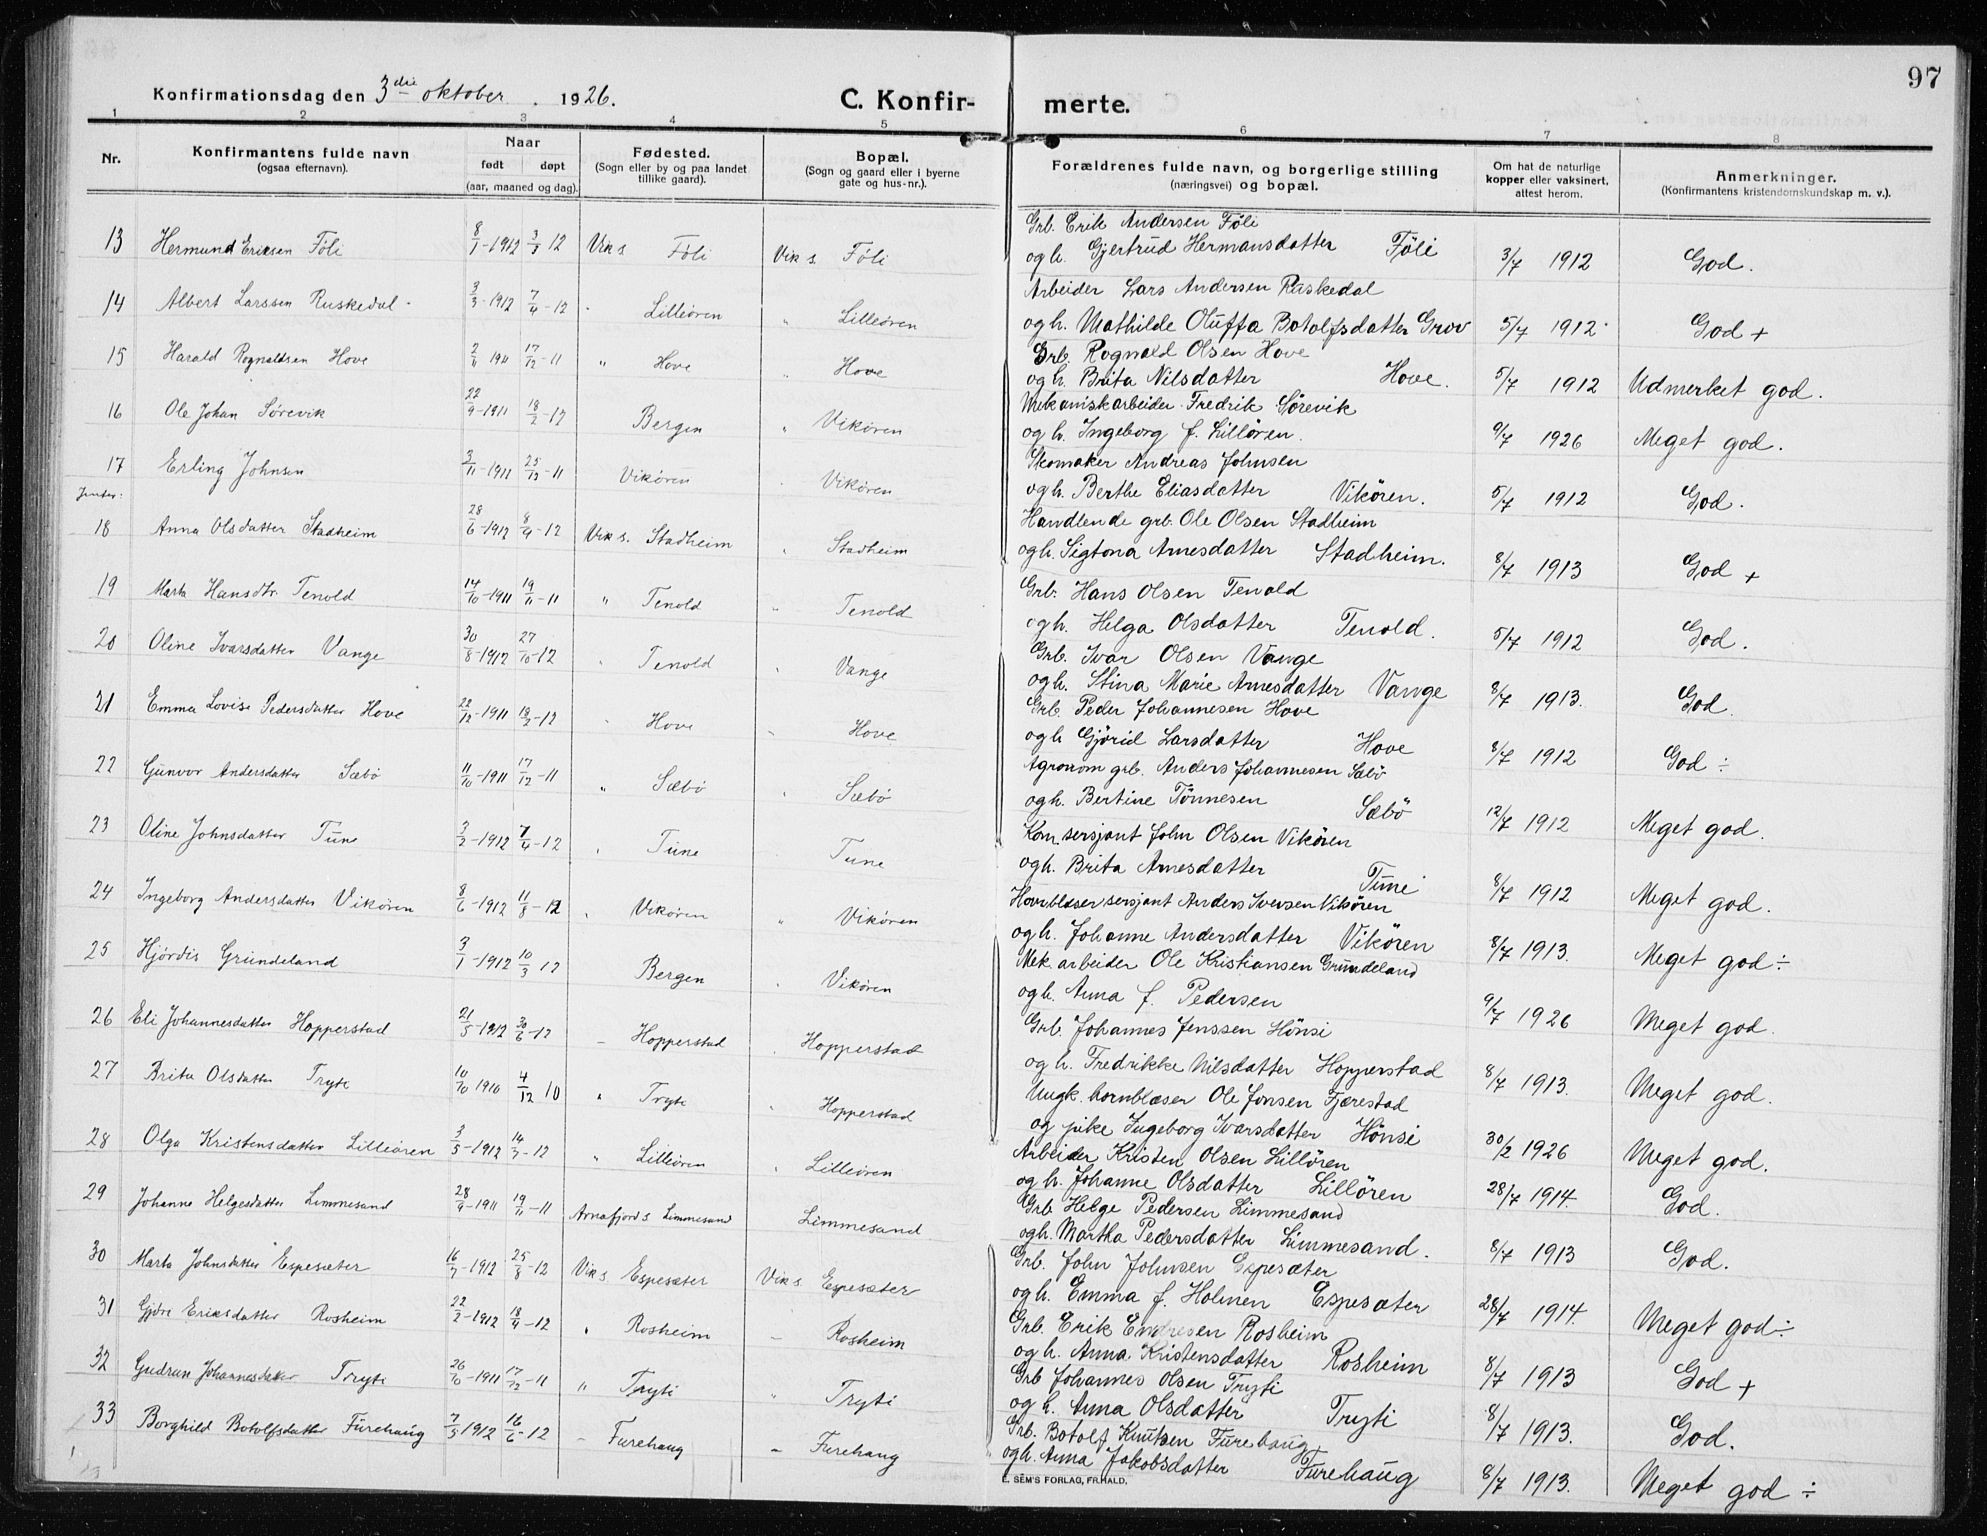 97
Konfirmationsdag den 3die oktober . 1926.
C. Konfir-merte.
1 2 3 4 5 6 7 8
Nr.
Konfirmantens fulde navn
(ogsaa efternavn).
Naar
født døpt
(aar, maaned og dag).
Fødested.
(Sogn eller by og paa landet
tillike gaard).
Bopæl.
(Sogn og gaard eller i byerne
gate og hus-nr.).
Forældrenes fulde navn, og borgerlige stilling
(næringsvei) og bopæl.
Om hat de naturlige
kopper eller vaksinert,
attest herom.
Anmerkninger.
(Konfirmantens kristendomskundskap m. v.).
Grb. Erik Andersen Føli
13 Hermund Eriksen Føli 8/1-1912 3/3 12 Vik s. Føli Vik s. Føli og h. Gjertrud Hermansdatter Føli 3/7 1912 God.
Arbeider Lars Andersen Ruskedal
14 Albert Larssen Ruskedal - 3/3-1912 7/4-12 " Lilleøren " Lilleøren og h. Mathilde Oluffa Botolfsdatter Grov 5/7 1912 God +
Grb. Rognald Olsen Hove
15 Harald Rognaldsen Hove 1911 17/12-11 " Hove " Hove og h. Brita Nilsdatter Hove. 5/7 1912 Udmerket god.
Mekaniskarbeider Fredrik Sørevik
16 Ole Johan Sørevik 22/9-1911 18/2-12 Bergen " Vikøren og h. Ingeborg f. Lilløren. 9/7 1926 Meget god.
Skomaker Andreas Johnsen
17 Erling Johnsen 3/11-1911 25/12-11 Vikøren " Vikøren og h. Berthe Eliasdatter Vikøren. 5/7 1912 God.
Jenter:
Handlende grb. Ole Olsen Stadheim
18 Anna Olsdatter Stadheim 28/6-1912 8/9-12 Vik s. Stadheim " Stadheim og h. Sigtona Arnesdatter Stadheim. 8/7 1913 God +
Grb. Hans Olsen Tenold
19 Marta Hansdtr. Tenold 14/10-1911 19/11-11 " Tenold " Tenold og h. Helga Olsdatter Tenold. 5/7 1912 God.
Grb. Ivar Olsen Vange
20 Oline Ivarsdatter Vange 30/8-1912 27/10-12 " Tenold " Vange og h. Stina Marie Arnesdatter Vange 8/7 1913. God.
Grb. Peder Johannesen Hove
21 Emma Lovise Pedersdatter Hove 22/12-1911 18/2-12 " Hove " Hove og h. Gjørid Larsdatter Hove 8/7 1912 God ÷
Agronom grb. Anders Johannesen Sæbø
22 Gunvor Andersdatter Sæbø 11/10-1911 17/12-11 " Sæbø " Sæbø og h. Bertine Tønnesen Sæbø 12/7 1912 Meget god.
Kom.sersjant John Olsen Vikøren
23 Oline Johnsdatter Tune 3/2-1912 7/4-12 " Tune Tune og h. Brita Arnesdatter Tune 8/7 1912 Meget god.
Hornblæser sersjant Anders Iversen Vikøren
24 Ingeborg Andersdatter Vikøren 8/6-1912 11/8-12 " Vikøren " Vikøren og h. Johanne Andersdatter Vikøren 8/7 1913. Meget god ÷
Mek. arbeider Ole Kristiansen Grundeland
25 Hjørdis Grundeland 3/1-1912 10/3 12 Bergen " Vikøren og h. Anna f. Pedersen 9/7 1926 Meget god.
Grb. Johannes Jenssen Hønsi
26 Eli Johannesdatter Hopperstad 21/5-1912 30/6-12 " Hopperstad " Hopperstad og h. Fredrikke Nilsdatter Hopperstad 8/7 1913. Meget god.
Ungk. hornblæser Ole Jonsen Tjærestad
27 Brita Olsdatter Tryti 10/10 1910 4/12 10 " Tryti " Hopperstad og pike Ingeborg Ivarsdatter Hønsi 30/2 1926 Meget god.
Arbeider Kristen Olsen Lilløren
28 Olga Kristensdatter Lilleøren 3/5-1912 14/7-12 " Lilleøren " Lilleøren og h. Johanne Olsdatter Lilløren 28/7 1914. God.
Grb. Helge Pedersen Limmesand
29 Johanne Helgesdatter Limmesand 28/9-1911 19/11-11 Arnafjord s Limmesand Limmesand og h. Martha Pedersdatter Limmesand. 8/7 1913 God.
Grb. John Johnsen Espesæter
30 Marta Johnsdatter Espesæter 16/7-1912 25/8-12 Vik s. Espesæter Vik s. Espesæter og h. Emma f. Holmen Espesæter 28/7 1914. Meget god ÷
Grb. Erik Endresen Rosheim
31 Gjøre Eriksdatter Rosheim 22/2-1912 18/4-12 " Rosheim " Rosheim og h. Anna Kristensdatter Rosheim 8/7 1913 God +
Grb Johannes Olsen Tryti
32 Gudrun Johannesdatter Tryti 26/10-1911 17/12-11 " Tryti " Tryti og h. Anna Olsdatter Tryti 8/7 1913. God.
Grb. Botolf Knutsen Furehaug
33 Borghild Botolfsdatter Furehaug 7/5 1912 16/6-12 " Furehaug " Furehaug og h. Anna Jakobsdatter Furehaug 8/7 1913. Meget god ÷
E. SEM'S FORLAG, FR.HALD.